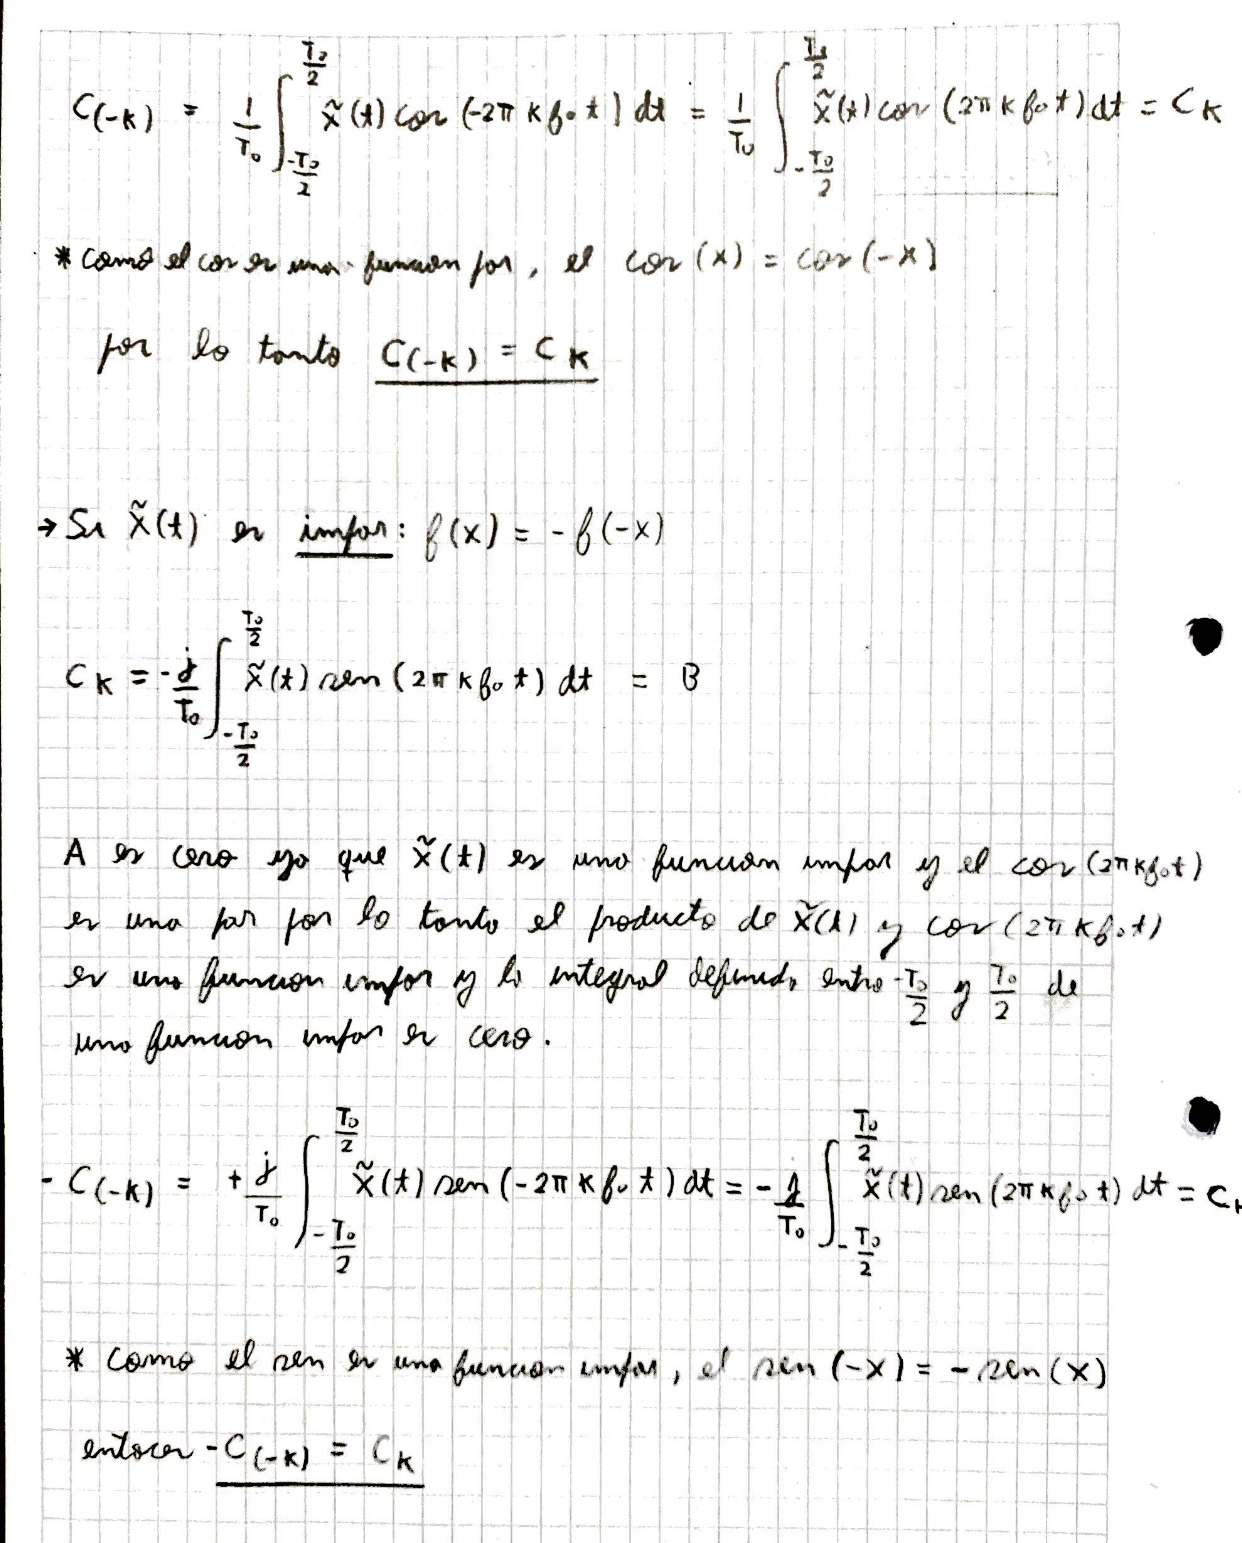 C(-k) = 1/T₀ ∫_{-T₀/2}^{T₀/2} x̃(t) cos(-2πkf₀t) dt = 1/T₀ ∫_{-T₀/2}^{T₀/2} x̃(t) cos(2πkf₀t) dt = Ck
* como el cos es una funcion par, el cos(x) = cos(-x)
por lo tanto C(-k) = Ck
→ Si x̃(t) es impar: f(x) = -f(-x)
Ck = -j/T₀ ∫_{-T₀/2}^{T₀/2} x̃(t) sen(2πkf₀t) dt = B
A es cero ya que x̃(t) es una funcion impar y el cos(2πkf₀t)
es una par por lo tanto el producto de x̃(t) y cos(2πkf₀t)
es una funcion impar y la integral definida entre -T₀/2 y T₀/2 de
una funcion impar es cero.
- C(-k) = +j/T₀ ∫_{-T₀/2}^{T₀/2} x̃(t) sen(-2πkf₀t) dt = -j/T₀ ∫_{-T₀/2}^{T₀/2} x̃(t) sen(2πkf₀t) dt = Ck
* como el sen es una funcion impar, el sen(-x) = -sen(x)
entoces -C(-k) = Ck